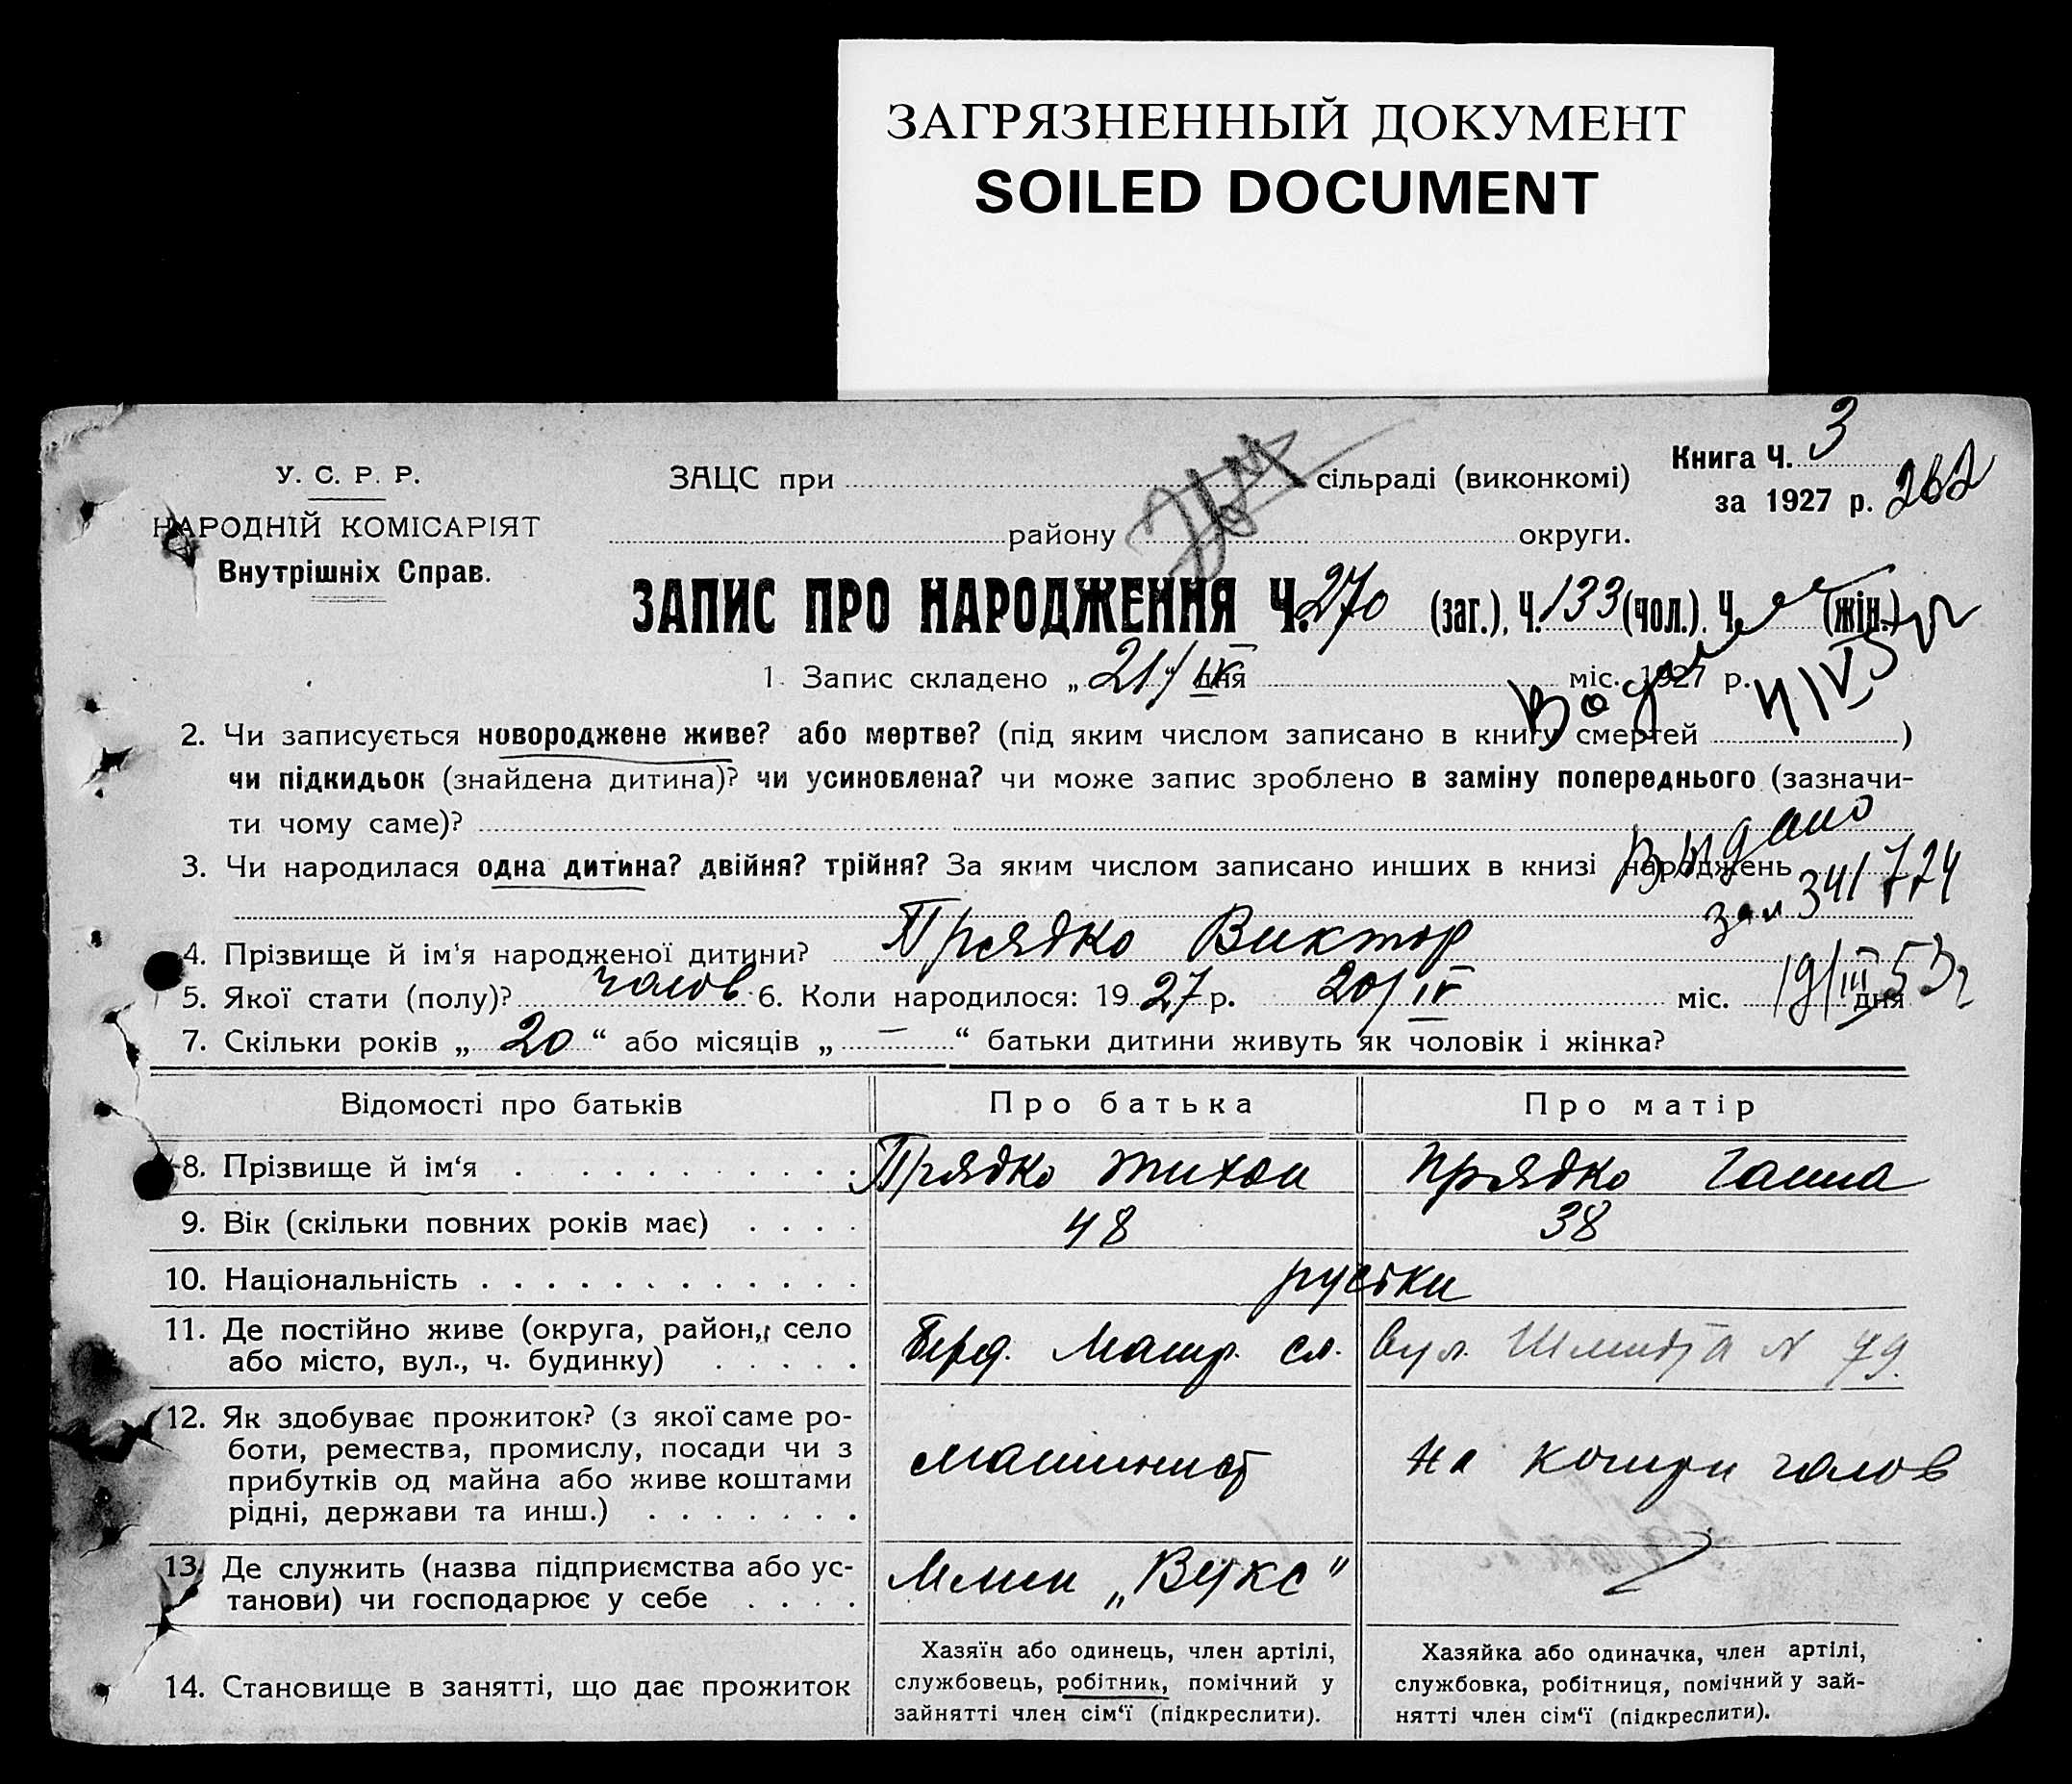 ЗАГРЯЗНЕННЫЙ ДОКУМЕНТ
SOILED DOCUMENT
У. С. Р. Р.
НАРОДНІЙ КОМІСАРІЯТ
Внутрішніх Справ.
ЗАЦС при сільраді (виконкомі)
району округи.
Книга Ч. 3
за 1927 р. 262
ЗАПИС ПРО НАРОДЖЕННЯ Ч. 270 (заг.), Ч. 133 (чол.), Ч. (жін.)
1. Запис складено „ 21/IV дня міс. 1927 р.
2. Чи записується новороджене живе? або мертве? (під яким числом записано в книгу смертей )
чи підкидьок (знайдена дитина)? чи усиновлена? чи може запис зроблено в заміну попереднього (зазначи-
ти чому саме)?
Выдано
3. Чи народилася одна дитина? двійня? трійня? За яким числом записано инших в книзі народжень
341724
4. Прізвище й ім'я народженої дитини? Прядко Виктор
19/III 53 г
5. Якої стати (полу)? чолов 6. Коли народилося: 1927 р. 20/IV міс. дня
7. Скільки років „ 20 “ або місяців „ — “ батьки дитини живуть як чоловік і жінка?
Відомості про батьків Про батька Про матір
8. Прізвище й ім‘я Прядко Тихон Прядко Ганна
9. Вік (скільки повних років має) 48 38
10. Національність руські
11. Де постійно живе (округа, район, село
або місто, вул., ч. будинку) Берд. сл. Вул. Шмидта N 79.
12. Як здобуває прожиток? (з якої саме ро-
боти, ремества, промислу, посади чи з
прибутків од майна або живе коштами
рідні, держави та инш.) машинист На чолов
13. Де служить (назва підприємства або ус-
танови) чи господарює у себе Млин „Вукс“
14. Становище в занятті, що дає прожиток
Хазяїн або одинець, член артілі,
службовець, робітник, помічний у
зайнятті член сім‘ї (підкреслити).
Хазяйка або одиначка, член артілі,
службовка, робітниця, помічний у зай-
нятті член сім‘ї (підкреслити).